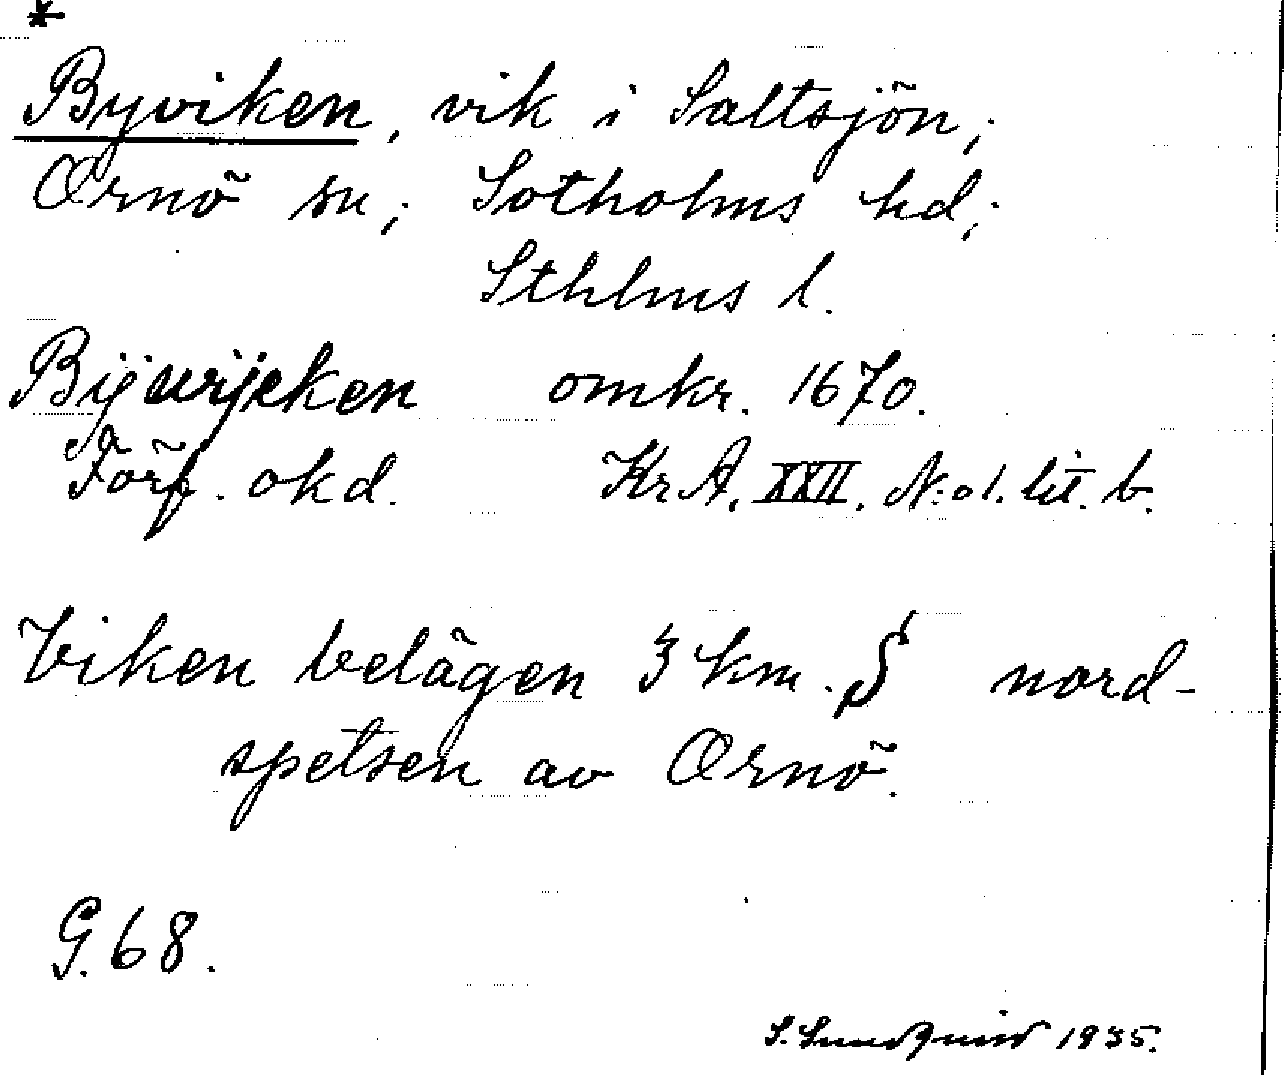 *
Byviken, vik i Saltsjön;
Ornö sn; Sotholms hd;
Sthlms l.
Bijwijken omkr. 1670.
Förf. okd. KrA, XXII. N:o 1. lit. b.
Viken belägen 3 km. S nord-
spetsen av Ornö.
G. 68.
S. Sundquist 1935.